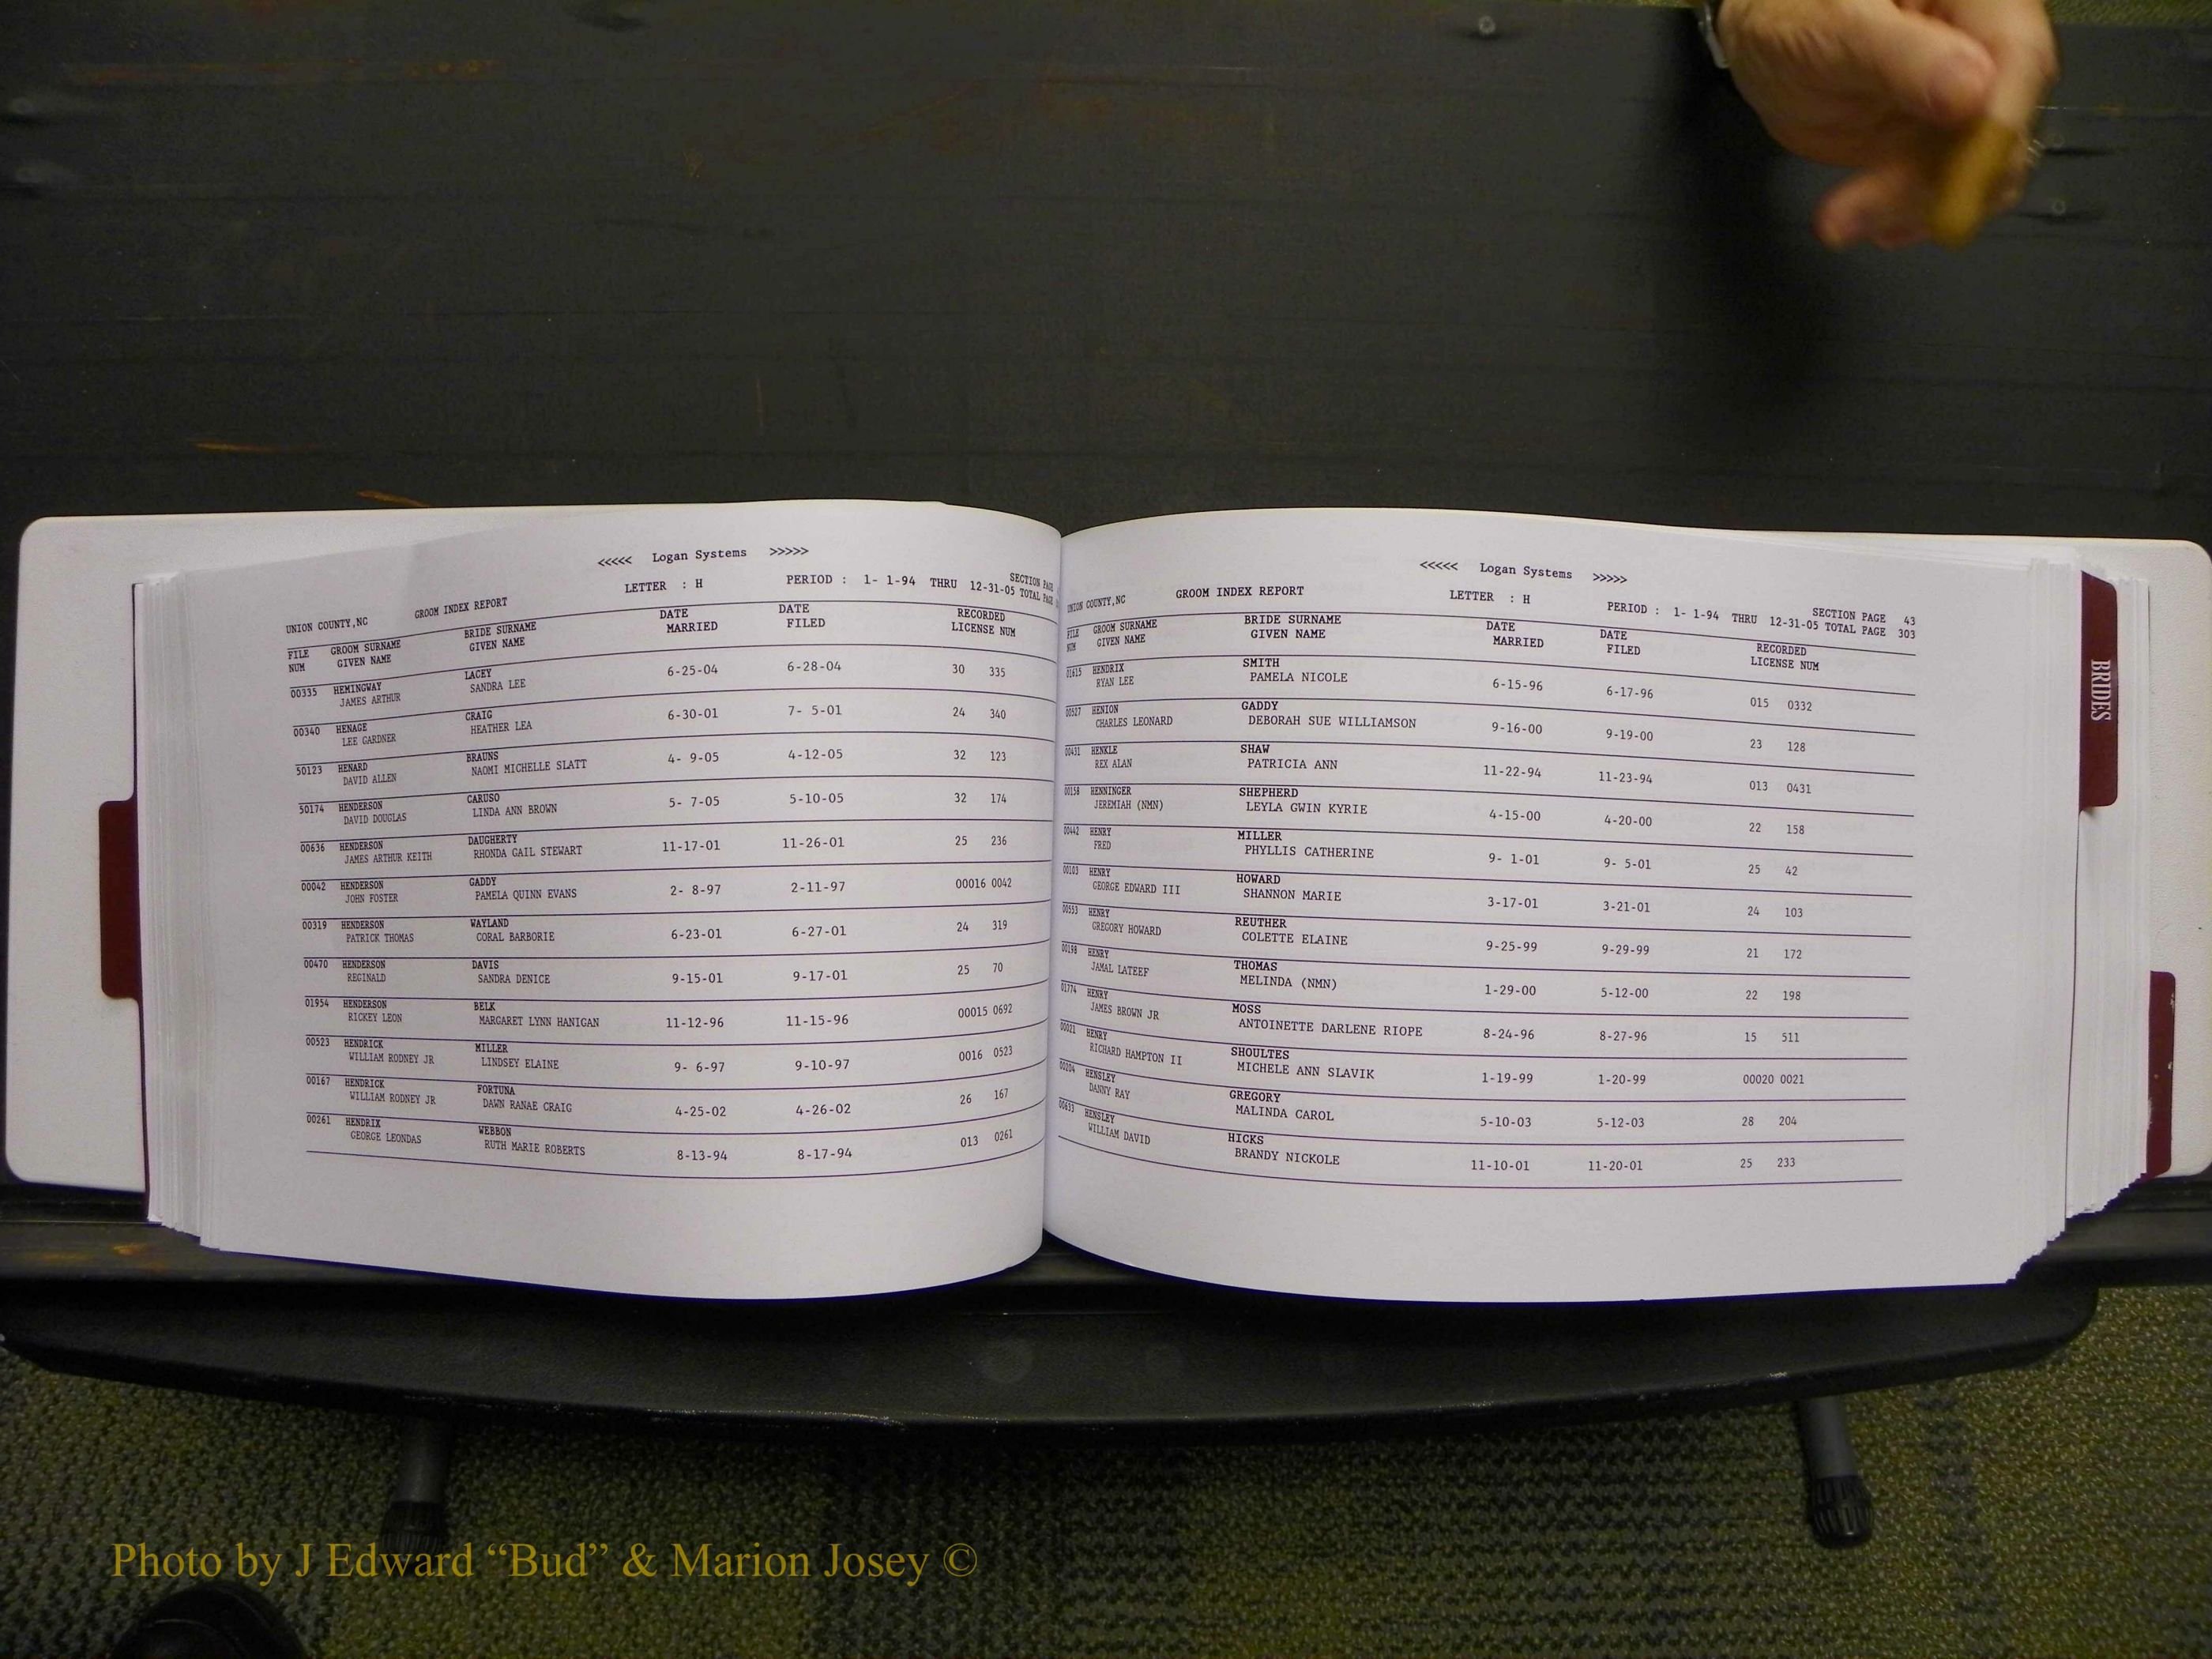 <<<<< Logan Systems >>>>>
UNION COUNTY,NC GROOM INDEX REPORT LETTER : H PERIOD : 1- 1-94 THRU 12-31-05 SECTION PAGE
TOTAL PAGE
FILE GROOM SURNAME BRIDE SURNAME DATE DATE RECORDED
NUM GIVEN NAME GIVEN NAME MARRIED FILED LICENSE NUM
00335 HEMINGWAY LACEY 6-25-04 6-28-04 30 335
JAMES ARTHUR SANDRA LEE
00340 HENAGE CRAIG 6-30-01 7- 5-01 24 340
LEE GARDNER HEATHER LEA
50123 HENARD BRAUNS 4- 9-05 4-12-05 32 123
DAVID ALLEN NAOMI MICHELLE SLATT
50174 HENDERSON CARUSO 5- 7-05 5-10-05 32 174
DAVID DOUGLAS LINDA ANN BROWN
00636 HENDERSON DAUGHERTY 11-17-01 11-26-01 25 236
JAMES ARTHUR KEITH RHONDA GAIL STEWART
00042 HENDERSON GADDY 2- 8-97 2-11-97 00016 0042
JOHN FOSTER PAMELA QUINN EVANS
00319 HENDERSON WAYLAND 6-23-01 6-27-01 24 319
PATRICK THOMAS CORAL BARBORIE
00470 HENDERSON DAVIS 9-15-01 9-17-01 25 70
REGINALD SANDRA DENICE
01954 HENDERSON BELK 11-12-96 11-15-96 00015 0692
RICKEY LEON MARGARET LYNN HANIGAN
00523 HENDRICK MILLER 9- 6-97 9-10-97 0016 0523
WILLIAM RODNEY JR LINDSEY ELAINE
00167 HENDRICK FORTUNA 4-25-02 4-26-02 26 167
WILLIAM RODNEY JR DAWN RANAE CRAIG
00261 HENDRIX WEBBON 8-13-94 8-17-94 013 0261
GEORGE LEONDAS RUTH MARIE ROBERTS
<<<<< Logan Systems >>>>>
UNION COUNTY,NC GROOM INDEX REPORT LETTER : H PERIOD : 1- 1-94 THRU 12-31-05 SECTION PAGE 43
TOTAL PAGE 303
FILE GROOM SURNAME BRIDE SURNAME DATE DATE RECORDED
NUM GIVEN NAME GIVEN NAME MARRIED FILED LICENSE NUM
01615 HENDRIX SMITH 6-15-96 6-17-96 015 0332
RYAN LEE PAMELA NICOLE
00527 HENION GADDY 9-16-00 9-19-00 23 128
CHARLES LEONARD DEBORAH SUE WILLIAMSON
00431 HENKLE SHAW 11-22-94 11-23-94 013 0431
REX ALAN PATRICIA ANN
00158 HENNINGER SHEPHERD 4-15-00 4-20-00 22 158
JEREMIAH (NMN) LEYLA GWIN KYRIE
00442 HENRY MILLER 9- 1-01 9- 5-01 25 42
FRED PHYLLIS CATHERINE
00103 HENRY HOWARD 3-17-01 3-21-01 24 103
GEORGE EDWARD III SHANNON MARIE
00553 HENRY REUTHER 9-25-99 9-29-99 21 172
GREGORY HOWARD COLETTE ELAINE
00198 HENRY THOMAS 1-29-00 5-12-00 22 198
JAMAL LATEEF MELINDA (NMN)
01774 HENRY MOSS 8-24-96 8-27-96 15 511
JAMES BROWN JR ANTOINETTE DARLENE RIOPE
00021 HENRY SHOULTES 1-19-99 1-20-99 00020 0021
RICHARD HAMPTON II MICHELE ANN SLAVIK
00204 HENSLEY GREGORY 5-10-03 5-12-03 28 204
DANNY RAY MALINDA CAROL
00633 HENSLEY HICKS 11-10-01 11-20-01 25 233
WILLIAM DAVID BRANDY NICKOLE
BRIDES
Photo by J Edward “Bud” & Marion Josey ©